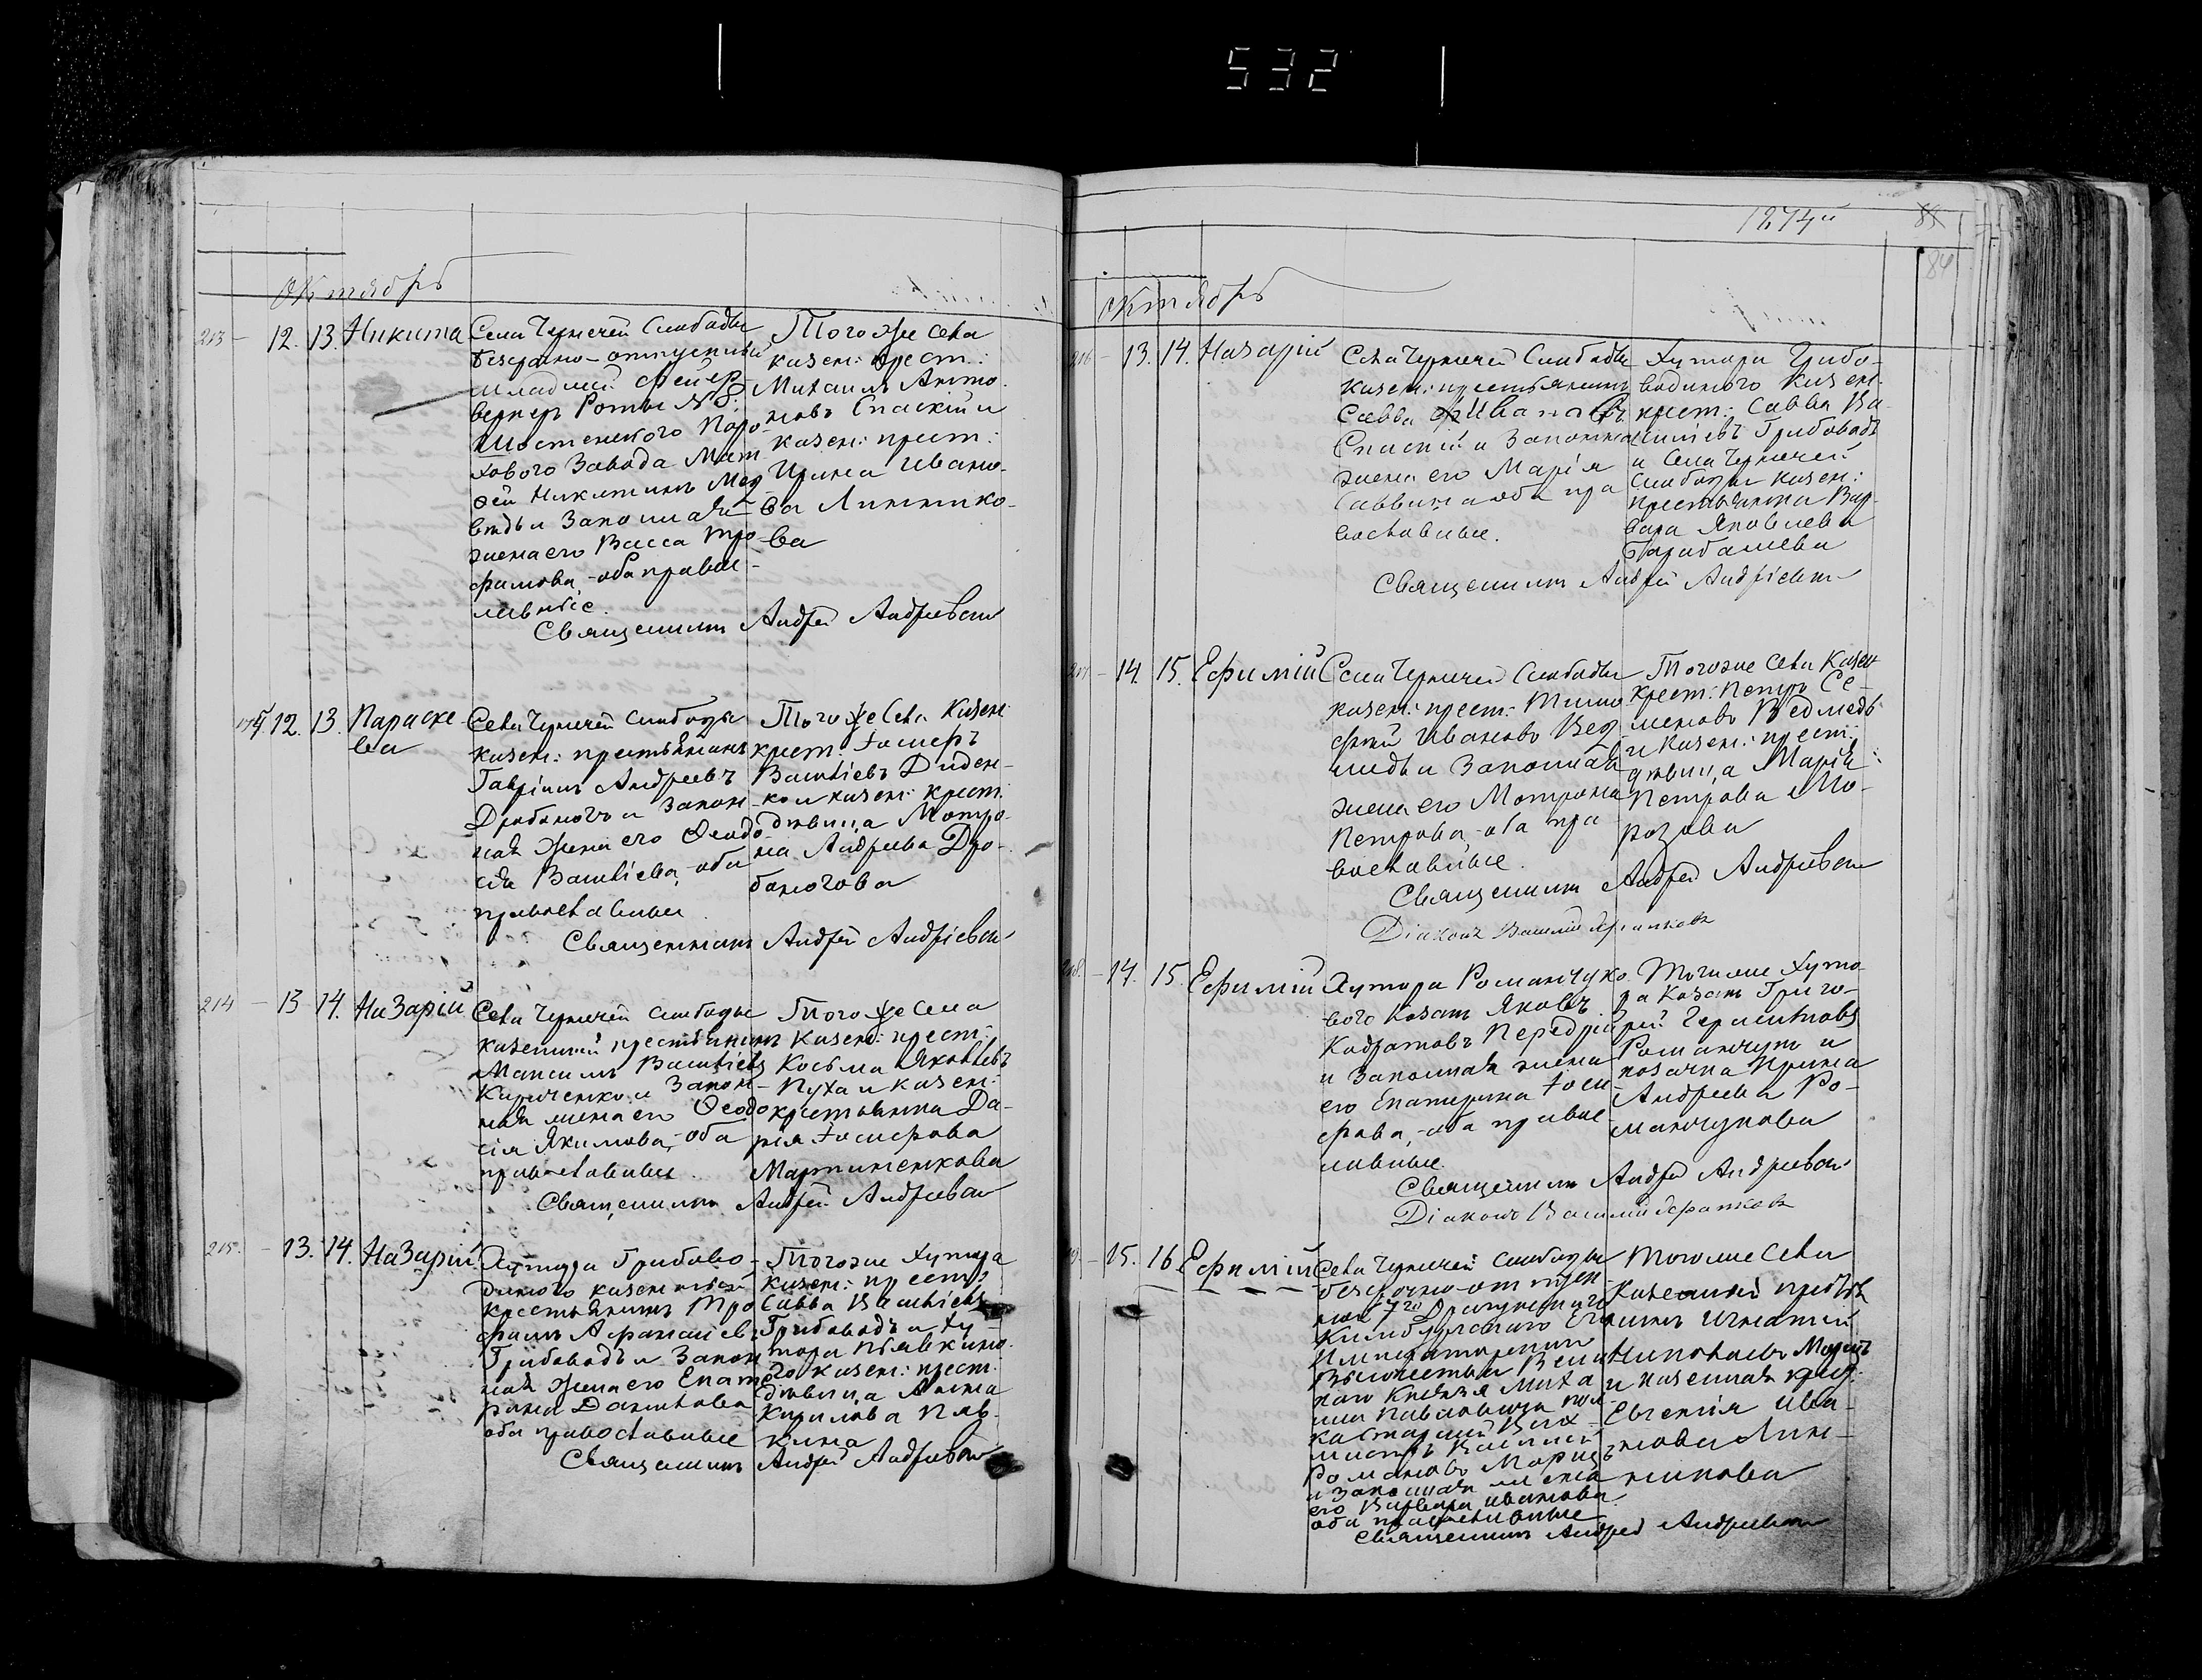 532
октябрь
213 - 12. 13. Никита
Села Чернечей Слободы
безсрочно-отпускный
младшей фейер
веркеръ Роты №8:
Шостенского Поро
хового Завода Мат
фей Никитинъ Мед
ведь и Законная
жена его Васса Тро
фимова, -оба правос
лавные.
Того же села
казен: крест:
Михаилъ Анто
новъ Спаский и
казен: крест:
Ирина Ивано-
ва Линнико-
ва
Священникъ Андрей Андриевский
12. 13. Параске
ва
Села Чернечей Слободы
казен: крестьянинъ
Гавріилъ Андреевъ
Дробоногъ и Закон
ная жена его Феодо
сія Василіева, оба
православныи.
Того же Села Казен
крест: Іосифъ
Василіевъ Диден-
ко и казен: крест:
дѣвица Мотро-
на Андреева Дро-
боногова
Священникъ Андрей Андріевский
214 - 13 14. Назарій
Села Чернечей Слободы
казенный крестьянинъ
Максимъ Василіевъ
Кириченко и Закон-
ная жена его Феодо
сія Якимова, -оба
православные.
Того же Села
Казен: крест:
Косьма Яковлевъ
Пуха и казен:
крестьянка Да-
рія Іосифова
Мартиненкова
Священникъ Андрей Андриевский
215. - 13. 14. Назарій.
Хутора Грибово-
диного казенный
крестьянинъ Тро
фимъ Афанасіевъ
Грибоводъ и Закон
ная жена его Екате
рина Данилова
оба православные
Тогоже Хутора
казен: крестъ
Савва Василіевъ
Грибоводъ и Ху-
тора Піявкино
го казен: крест:
дѣвица Анна
Кирилова Пяв-
кина
Священникъ Андрей Андриевский
1274й
85
84
октябрь
216 - 13. 14. Назарій
Села Чернечей Слободы
казен: крестьянинъ
Савва Ивановъ
Спаский и Законная
жена его Марія
Саввина оба пра
вославные.
Хутора Грибо-
водиного Казен
крест: Савва Ва
силіевъ Грибоводъ
и Села Чернечей
Слободы казен:
крестьянка Вар-
вара Яковлева
Барабашева
Священникъ Андрей Андріевский
217 - 14. 15. Ефимій
Села Чернечей Слободы
казен: крест: Тимо
фей Ивановъ Вед
медь и Законная
жена его Мотрона
Петрова, -оба пра
вославные.
Тогоже Села Казен
крест: Петръ Се-
меновъ Ведмедь
и казен: крест:
дѣвица Марія
Петрова Мо-
розова
Священникъ Андрей Андриевский
Діаконъ Василій
218. - 14. 15. Ефимій
Хутора Романчуко
вого Козакъ Яковъ
Кодратовъ Передрій
и Законная жена
его Екатерина Іоси
фова, -оба правос
лавные.
Тогоже Хуто-
ра Козакъ Григо-
рий
Романчукъ и
козачка Ирина
Андреева Ро-
манчукова
Священникъ Андрей Андриевский
Діаконъ Василій
219. - 15. 16. Ефимій
Села Чернечей Слободы
безсрочно-отпуск
ной 7го Драгунского
Кинбурнского Его
Императорскаго
Высочества Вели
каго Князя Миха
ила Павловича пол
ка старший Вахт
мистръ Василий
Романовъ Морицъ
и Законная жена
его Варвара Иванова
оба православные
Тогоже Села
Казенный кресть
янинъ Игнатий
Николаевъ Морицъ
и казенная крес
Евгенія Ива-
нова Лин-
никова
Священникъ Андрей Андриевский